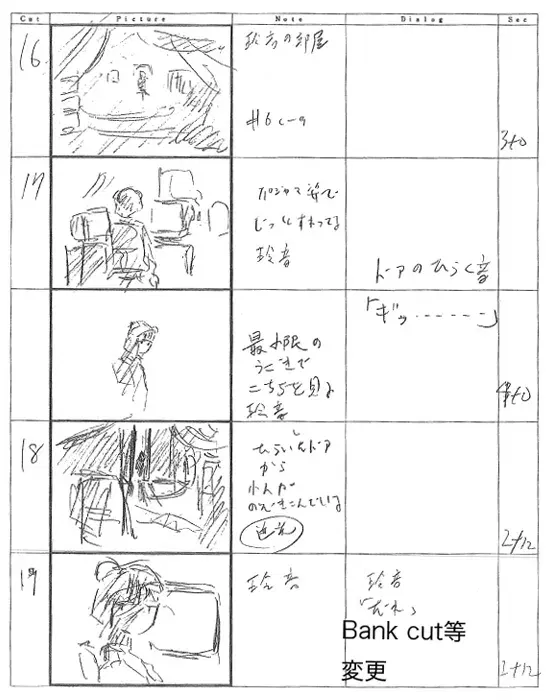 Cut Picture Note Dialog Sec
16
玲音の部屋
#6 C-9
3+0
17
パジャマ姿で
じっとすわってる
玲音
ドアのひらく音
「ギッ------」
最小限の
うごきで
こちらを見る
玲音
4+0
18
ひらいたドア
から
小人が
のぞきこんでいる
2+12
19
玲音
玲音
「だれ」
Bank cut等
変更
2+12